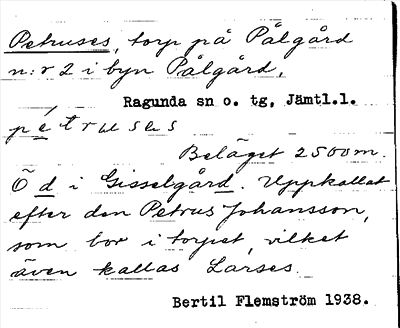 Petruses, torp på Pålgård
n:r 2 i byn Pålgård,
Ragunda sn o. tg, Jämtl.l.
pétruses
Beläget 2500 m.
Ö d i Gisselgård. Uppkallat
efter den Petrus Johansson,
som bor i torpet, vilket
även kallas Larses.
Bertil Flemström 1938.